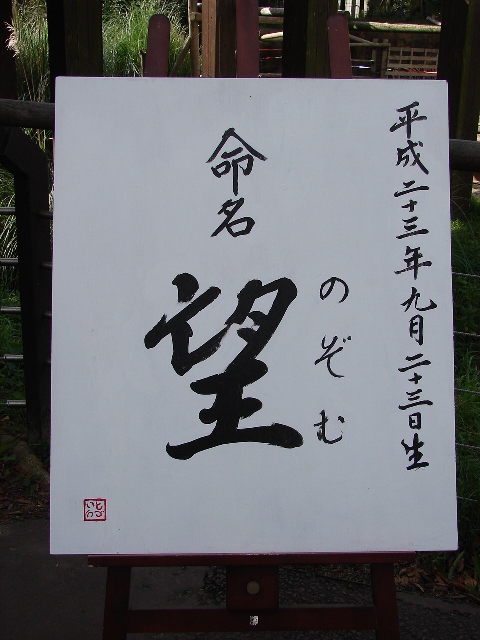 平成二十三年九月二十三日生
命名
望
のぞむ